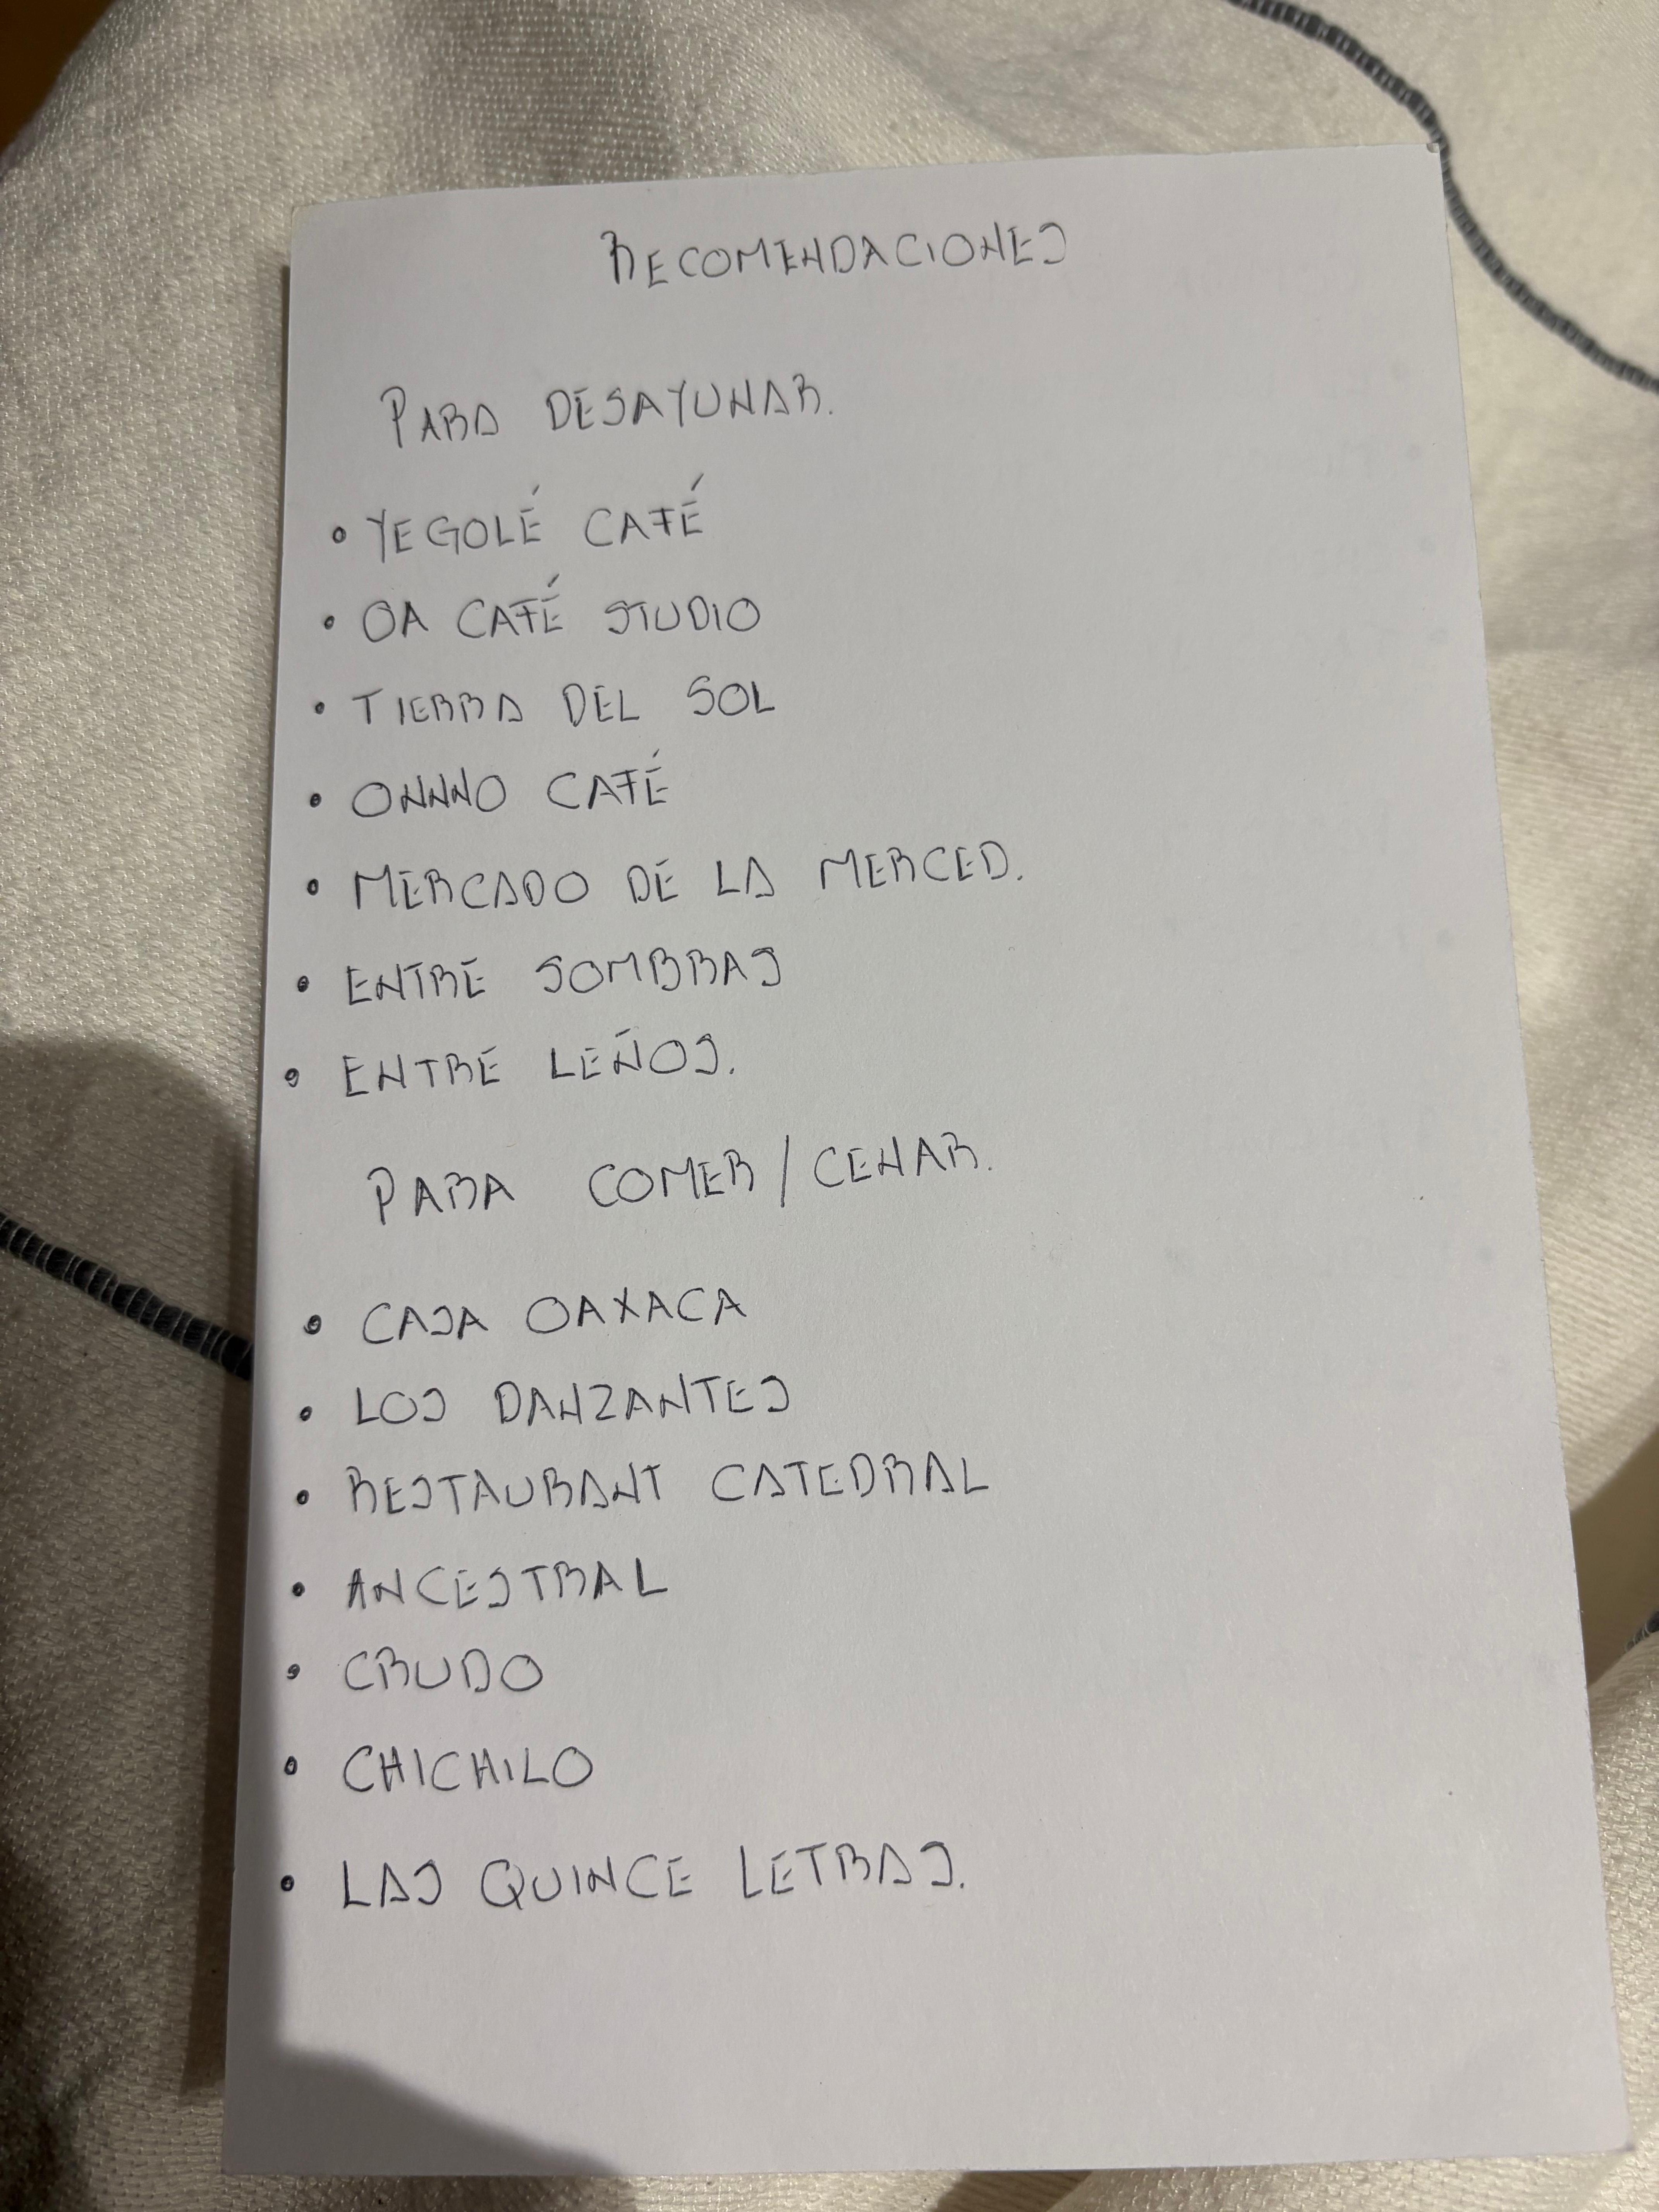 RECOMENDACIONES
PARA DESAYUNAR.
• YEGOLÉ CAFÉ
• OA CAFÉ STUDIO
• TIERRA DEL SOL
• ONNNO CAFÉ
• MERCADO DE LA MERCED.
• ENTRE SOMBRAS
• ENTRE LEÑOS.
PARA COMER / CENAR.
• CASA OAXACA
• LOS DANZANTES
• RESTAURANT CATEDRAL
• ANCESTRAL
• CRUDO
• CHICHILO
• LAS QUINCE LETRAS.